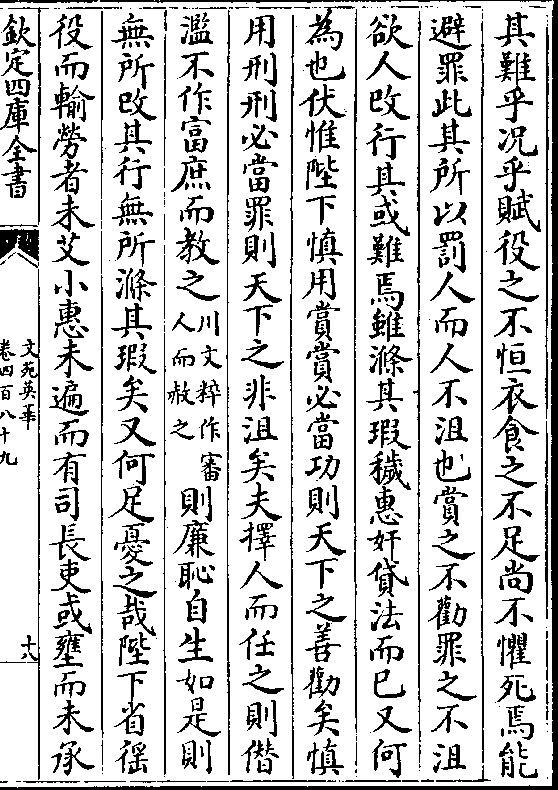 其難乎況乎賦役之不恒衣食之不足尚不懼死焉能
避罪此其所以罰人而人不沮也賞之不勸罪之不沮
欲人改行其或難焉雖滌其瑕穢惠奸貸法而已又何
為也伏惟陛下慎用賞賞必當功則天下之善勸矣慎
用刑刑必當罪則天下之非沮矣夫擇人而任之則僭
濫不作富庶而教之川文粹作審人而赦之則廉恥自生如是則
無所改其行無所滌其瑕矣又何足憂之哉陛下省徭
役而輸勞者未艾小惠未遍而有司長吏或壅而未承
欽定四庫全書
文苑英華
卷四百八十九
十八